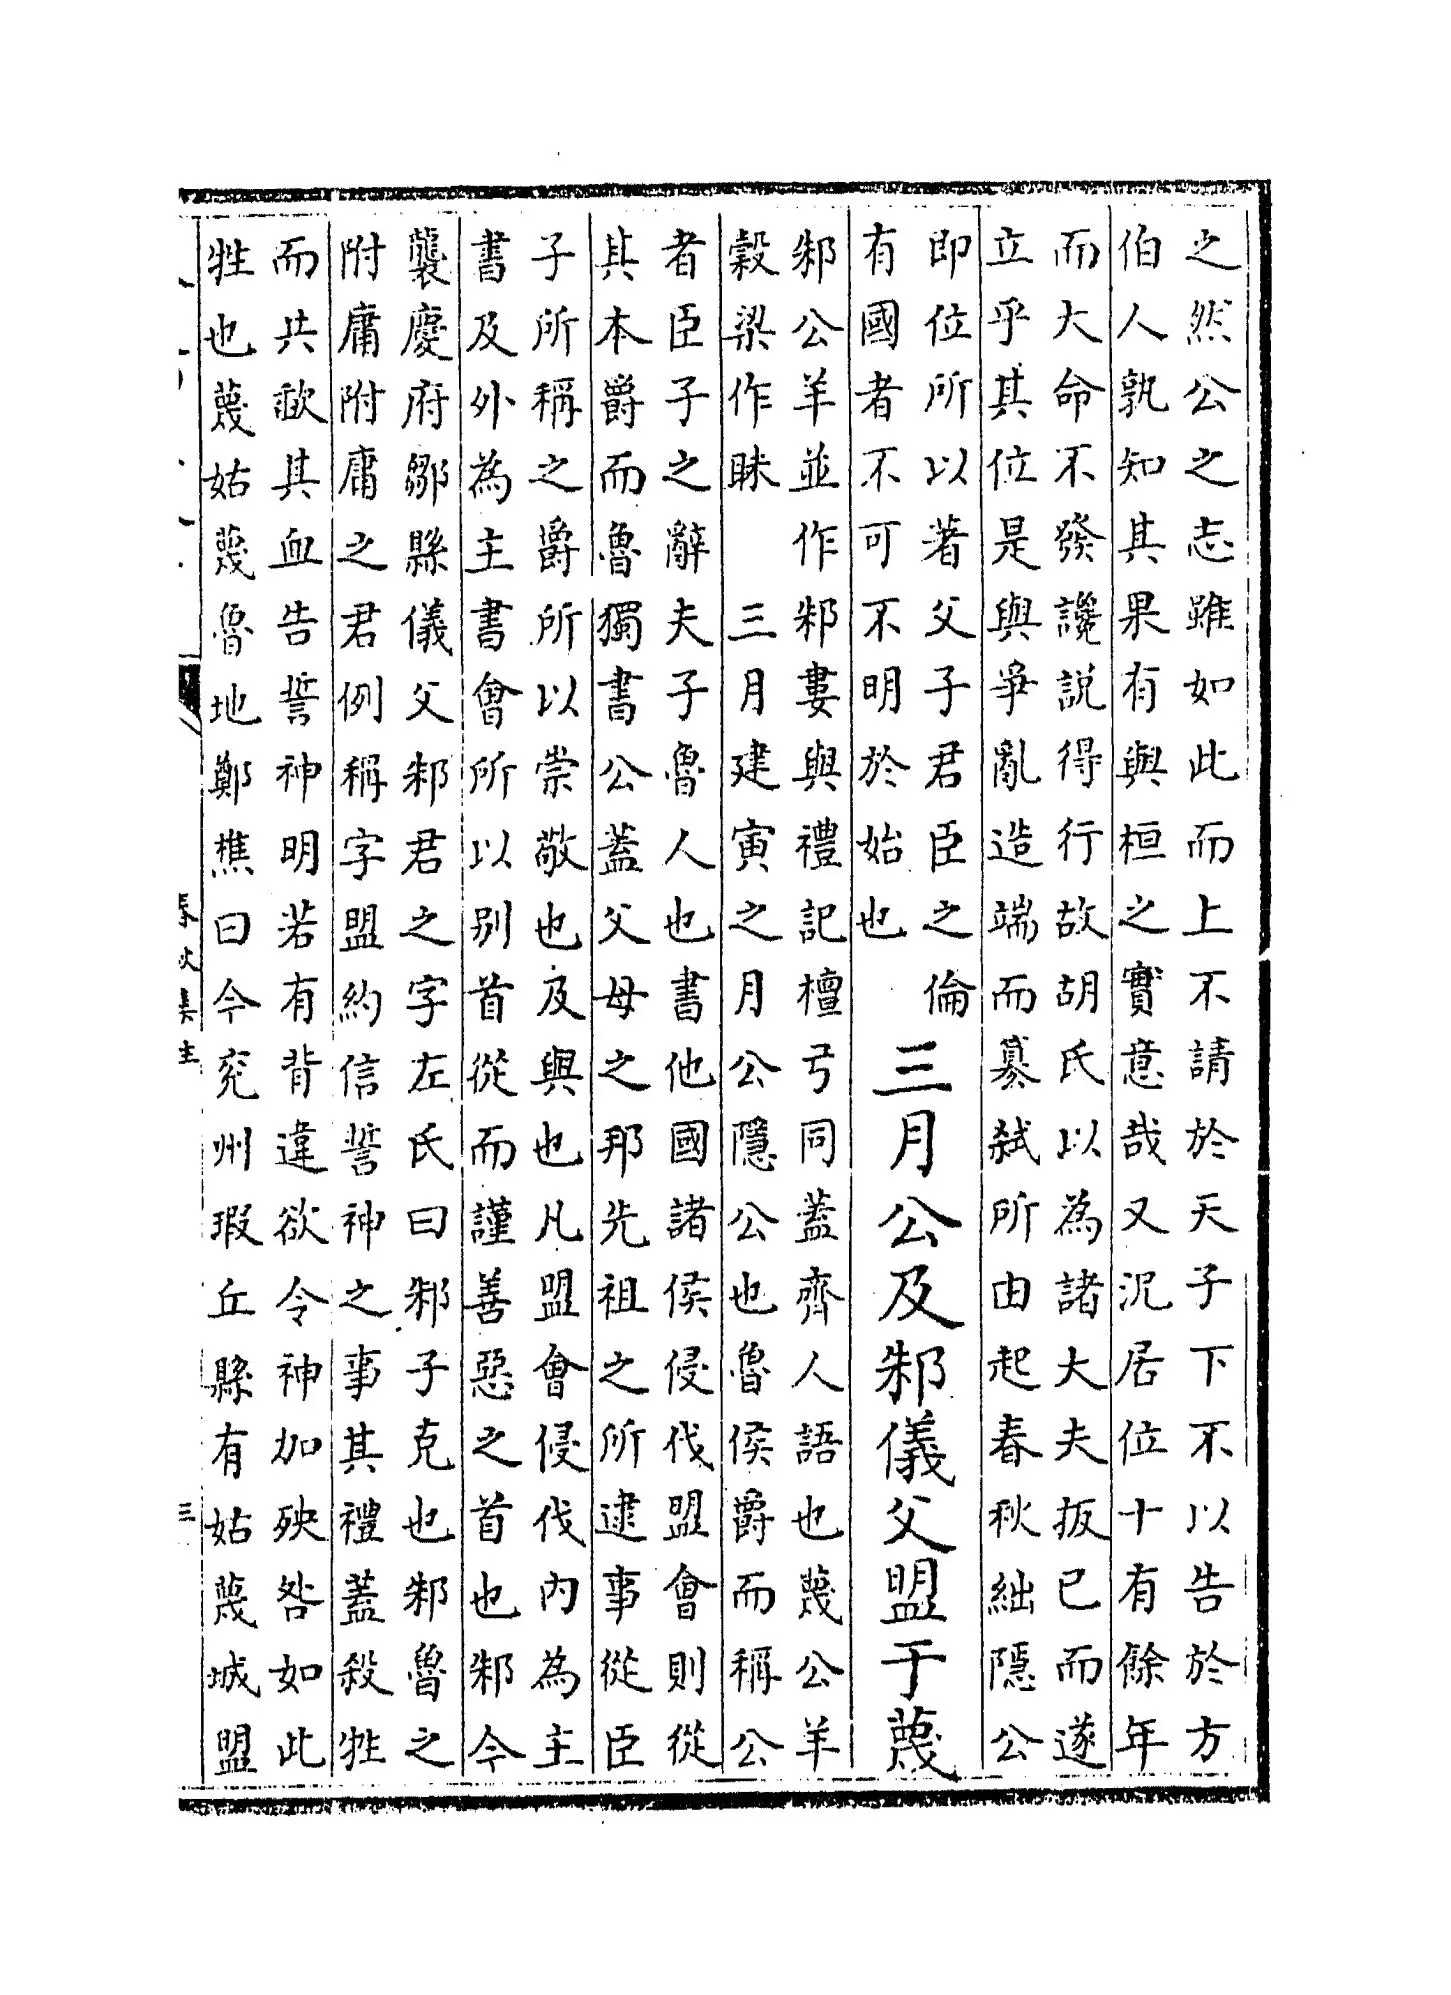 之然公之志雖如此而上不請於天子下不以告於方
伯人孰知其果有與桓之實意哉又況居位十有餘年
而大命不發讒説得行故胡氏以為諸大夫扳已而遂
立乎其位是與爭亂造端而簒弑所由起春秋絀隱公
即位所以著父子君臣之倫
有國者不可不明於始也
三月公及邾儀父盟于蔑
邾公羊並作邾婁與禮記檀弓同蓋齊人語也蔑公羊
穀梁作眛　三月建寅之月公隱公也魯侯爵而稱公
者臣子之辭夫子魯人也書他國諸侯侵伐盟會則從
其本爵而魯獨書公蓋父母之邦先祖之所逮事從臣
子所稱之爵所以崇敬也及與也凡盟會侵伐内為主
書及外為主書會所以别首從而謹善惡之首也邾今
襲慶府鄒縣儀父邾君之字左氏曰邾子克也邾魯之
附庸附庸之君例稱字盟約信誓神之事其禮蓋殺牲
而共歃其血告誓神明若有背違欲令神加殃咎如此
牲也蔑姑蔑魯地鄭樵曰今兖州瑕丘縣有姑蔑城盟
春秋集注
三